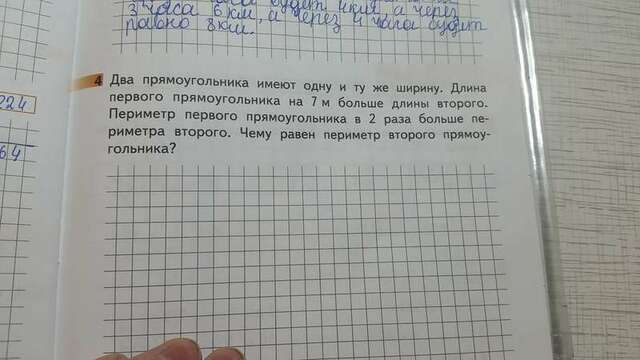 224
64
равно 8 км.
4 Два прямоугольника имеют одну и ту же ширину. Длина
первого прямоугольника на 7 м больше длины второго.
Периметр первого прямоугольника в 2 раза больше пе-
риметра второго. Чему равен периметр второго прямоу-
гольника?